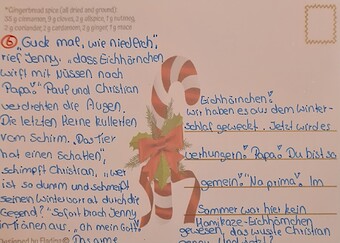 *Gingerbread spice (all dried and ground)
35 g cinnamon, 9 g cloves, 2 g allspice, 1 g nutmeg,
2 g coriander, 2 g cardamom, 2 g ginger, 1 g mace
⑥ „Guck mal, wie niedlich",
rief Jenny, „dass Eichhörnchen
wirft mit Nüssen nach
Papa!" Paul und Christian
verdrehten die Augen.
Die letzten Reine kullerten
vom Schirm. „Das Tier
hat einen Schatten",
schimpft Christian, „wer
ist so dumm und schmeißt
seinen Wintervorrat durch die
Gegend?" Sofort brach Jenny
in Tränen aus, „oh mein Gott!
Das arme
Eichhörnchen!
Wir haben es aus dem Winter-
schlaf geweckt. Jetzt wird es
verhungern! Papa! Du bist so
gemein!" „Na prima! Im
Sommer war hier kein
Kamikaze-Eichhörnchen
gewesen, das wusste Christian
Designed by